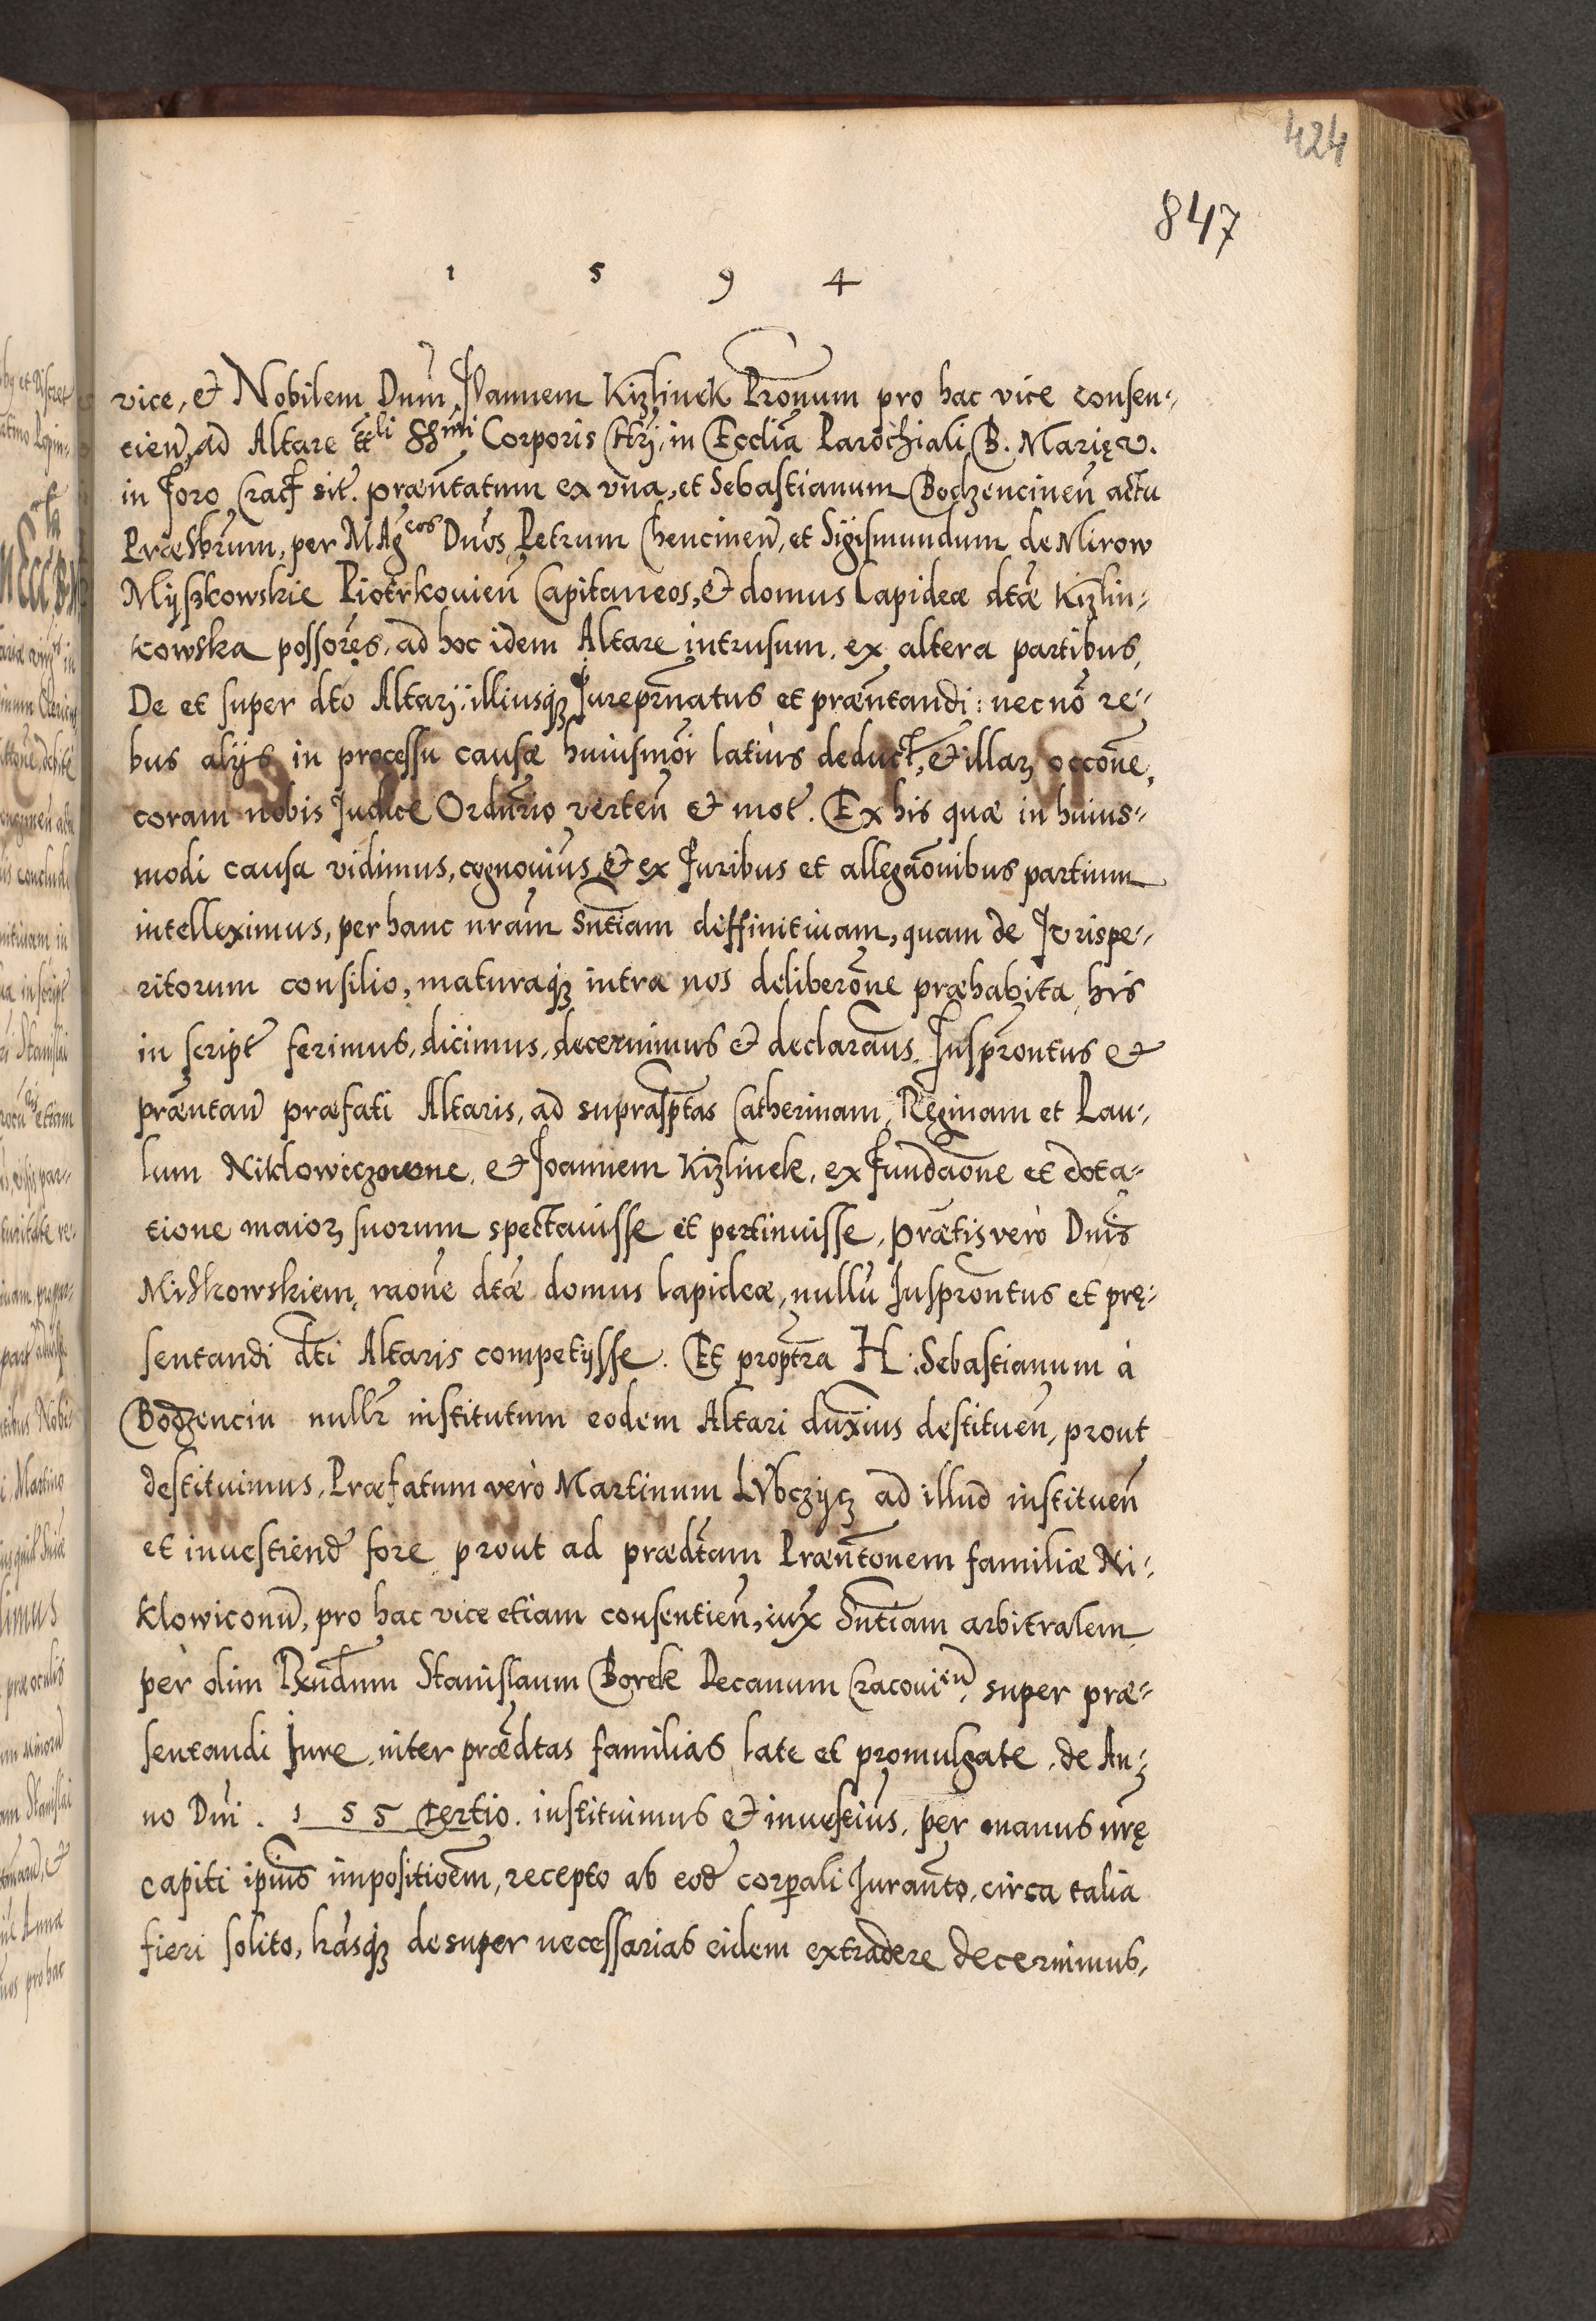 424
847
1 5 9 4
vice, et Nobilem Dnum Joannem Kizlinek Pronum pro hac vice consen-
tien, ad Altare ttli SSmi Corporis Chri, in Ecclia Parochiali B. Marię V.
in foro Crac sit. præntatum ex una, et Sebastianum Bodzencinen actu
Præsbrum, per MAgcos Dnos Petrum Chencinen, et Sigismundum de Mirow
Myszkowskie Piotrkovien Capitaneos, et domus lapideæ dtæ Kizlin-
kowska possores, ad hoc idem Altare intrusum. ex altera partibus,
De et super dto Altari, illiusq; Jurepronatus et præntandi: necno re-
bus alijs in processu causæ huiusmoi latius deduct, et illar occone,
coram nobis Judice Ordnrio verten et mot. Ex his quæ in huius-
modi causa vidimus, cognovius et ex Juribus et allegaonibus partium
intelleximus, per hanc nram Sntiam diffinitivam, quam de Jurispe-
ritorum consilio, maturaq; intra nos deliberone præhabita, his
in script ferimus, dicimus, decernimus et declaramus Juspronatus et
præntan præfati Altaris, ad suprasptas Catherinam, Reginam et Pau-
lum Niklowiczowne, et Joannem Kizlinek, ex fundaone et dota-
tione maior suorum spectavisse et pertinuisse, prætis vero Dnis
Miskowskiem, raone dtæ domus lapideæ, nullu Juspronatus et prę-
sentandi dti Altaris competijsse. Et proptra H. Sebastianum à
Bodzencin nullr institutum eodem Altari duximus destituen, prout
destituimus, Præfatum verò Martinum Lubczycz ad illud instituen
et investiend fore prout ad prædtam Præntonem familiæ Ni-
klowiconu, pro hac vice etiam consentien, iux Sntiam arbitralem
per olim Rxndum Stanislaum Borek Decanum Cracovien, super præ-
sentandi Jure, inter prædtas familias late et promulgate, de An-
no Dni. 1 5 5 tertio. instituimus et investius, per manus nrę
capiti ipius impositioem, recepto ab eod corpali Juranto, circa talia
fieri solito, lrasq; desuper necessarias eidem extradere decernimus,